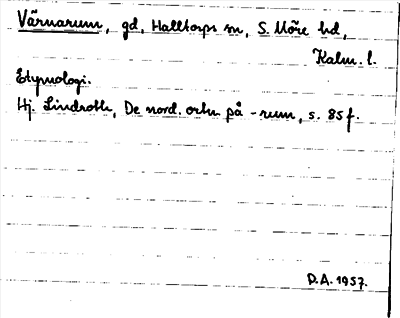 Värnarum, gd, Halltorps sn, S. Möre hd,
Kalm. l.
Etymologi.
Hj. Lindroth, De nord. ortn. på -rum, s. 85 f.
D.A. 1957.